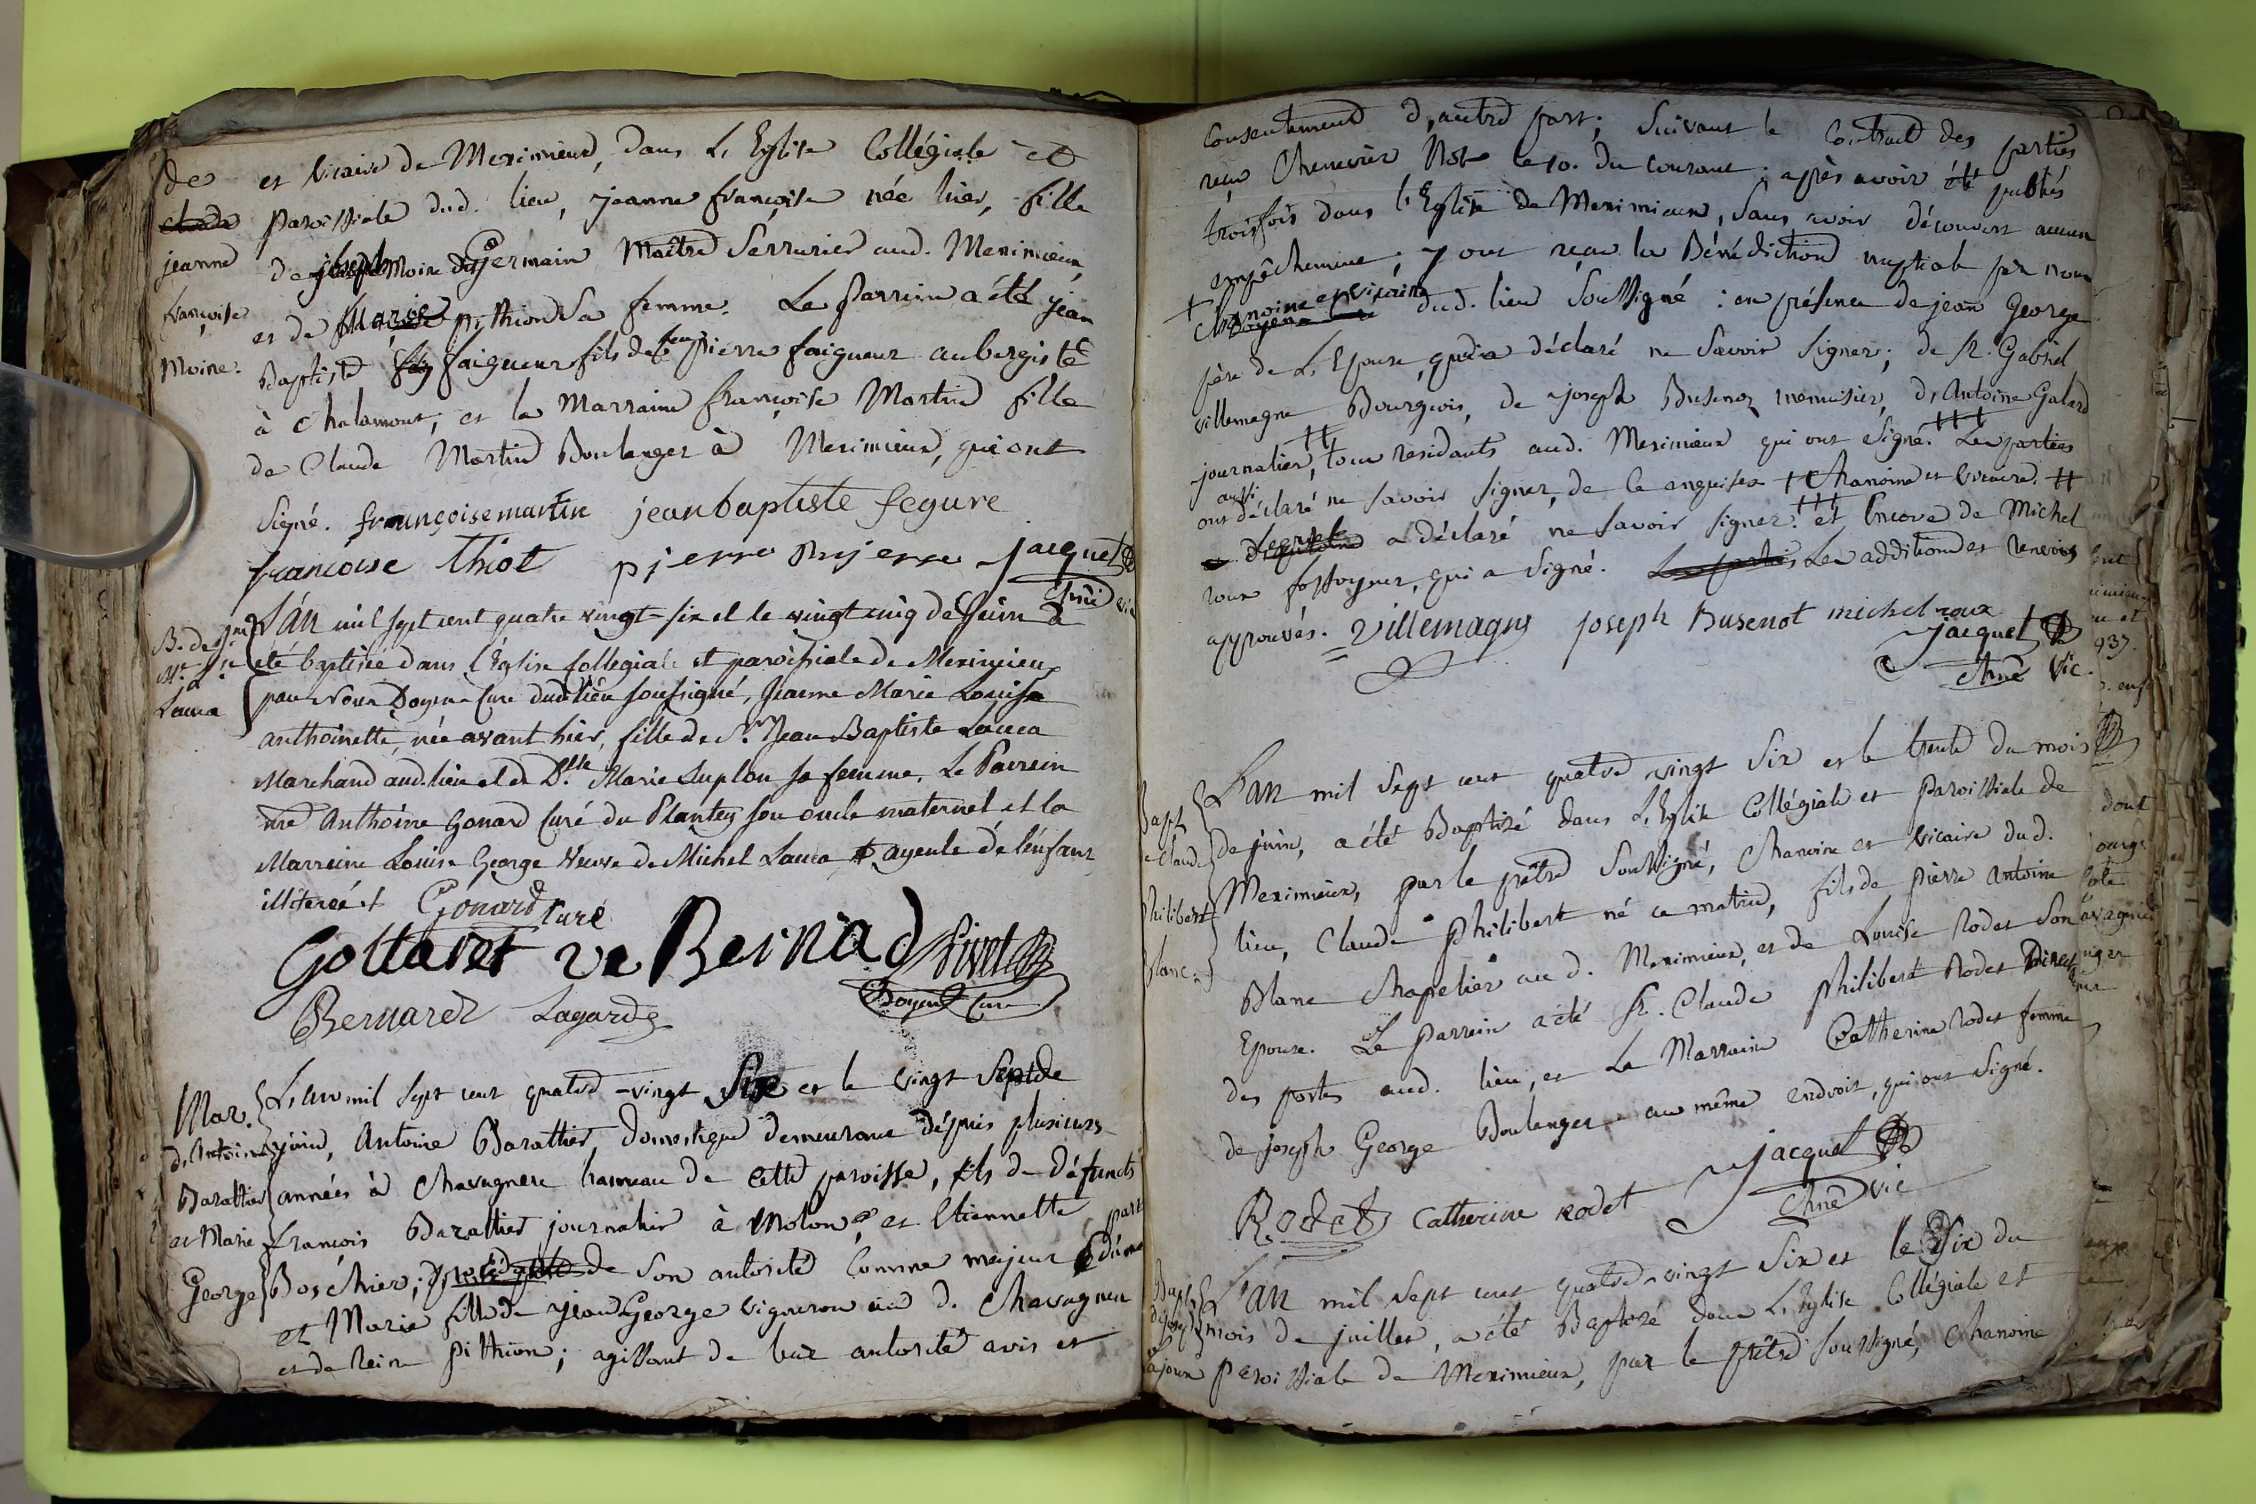 de
jeanne
françoise
Moine.
et Vicaire de Meximieux, dans L'Eglise Collégiale et
paroissiale dud. lieu, jeanne françoise née hier, fille
de joseph Moine dit Germain Maitre Serrurier aud. Meximieux,
et de Marie pithiond Sa femme. Le Parrein a été jean
Baptiste faigueur fils de feu pierre faigueur aubergiste
à Chalamont, et la Marraine françoise Martin fille
de Claude Martin Boulanger à Meximieux, qui ont
Signé. françoise martin jean baptiste fegure
francoise thiot pierre jacquet
chne vic
B. de jne
Me Lse
Lauca
L'an mil sept cent quatre vingt-six et le vingt cinq de juin a
été baptisée dans l'Eglise Collegiale et paroissiale de Meximieux
par Nous Doyen Curé dudit lieu soussigné, Jeanne Marie Louise
anthoinette, née avant hier, fille de Sr. Jean Baptiste Lauca
Marchand aud. lieu et de Dlle Marie Duplou sa femme. Le Parrein
Anthoine Gonard Curé du Plantey son oncle maternel et la
Marreine Louise George Veuve de Michel Lauca ayeule de l'enfant
illiterée
Gonard Curé
Gollaret ve Bernad Livet
Doyen Curé
Bernard Lagarde
Mar.
d'Antoine
Barattier
et Marie
George
L'an mil sept cent quatre-vingt Six et le vingt Sept de
juin, Antoine Barattier, domestique demeurant dépuis plusieurs
années à Chavagneu hameau de cette paroisse, fils de défunts
françois Barattier journalier à Molon, et Etiennette
Boschier; procédant de Son autorité Comme majeur d'une part
et Marie fille de jean George vigneron au d. Chavagneu
et de Reine pithion; agissant de leur autorité avis et
Consentement d'autre part; Suivant le Contract des parties
reçu Chenevier Not. le 10. du courant. après avoir été publiés
trois fois dans l'Eglise de Meximieux, Sans avoir découvert aucun
empêchement; y ont reçu la Bénédiction nuptiale par nous
+ Chanoine et vicaire dud. lieu Soussigné: en présence de jean George
père de L'Epouse, qui a déclaré ne Savoir Signer; de Sr. Gabriel
villemagne Bourgeois, de joseph Busenoz menuisier, d'Antoine Galard
journalier, ++ tous residants aud. Meximieux qui ont Signé. +++ Les parties
aussi
ont déclaré ne Savoir Signer, de ce enquises + Chanoine et Vicaire. ++
Lequel a déclaré ne Savoir Signer. +++ et Encore de Michel
roux fossoyeur, qui a Signé. Les additions et renvois
approuvés. Villemagne joseph Busenot michel roux
jacquet
chne vic.
Bapt
de Claude
Philibert
Blanc.
L'an mil Sept cent quatre-vingt Six et le trente du mois
de juin, a été Baptisé dans L'Eglise Collégiale et Paroissiale de
Meximieux, par le prêtre Soussigné, Chanoine et Vicaire dud.
lieu, Claude Philibert né ce matin, fils de pierre antoine
Blanc Chapelier au d. Meximieux, et de Louise Rodet Son
Epouse. Le Parrein a été Sr. Claude Philibert Rodet Directeur
des postes aud. lieu, et La Marraine Catherine Rodet femme
de joseph George Boulanger au même endroit, qui ont Signé.
jacquet
Rodet Catherine rodet chne vic
Bapt.
de joseph
Lajoux
L'an mil Sept cent quatre-vingt Six et le Six du
mois de juillet, a été Baptisé dans L'Eglise Collégiale et
paroissiale de Meximieux, par le prêtre Soussigné, Chanoine